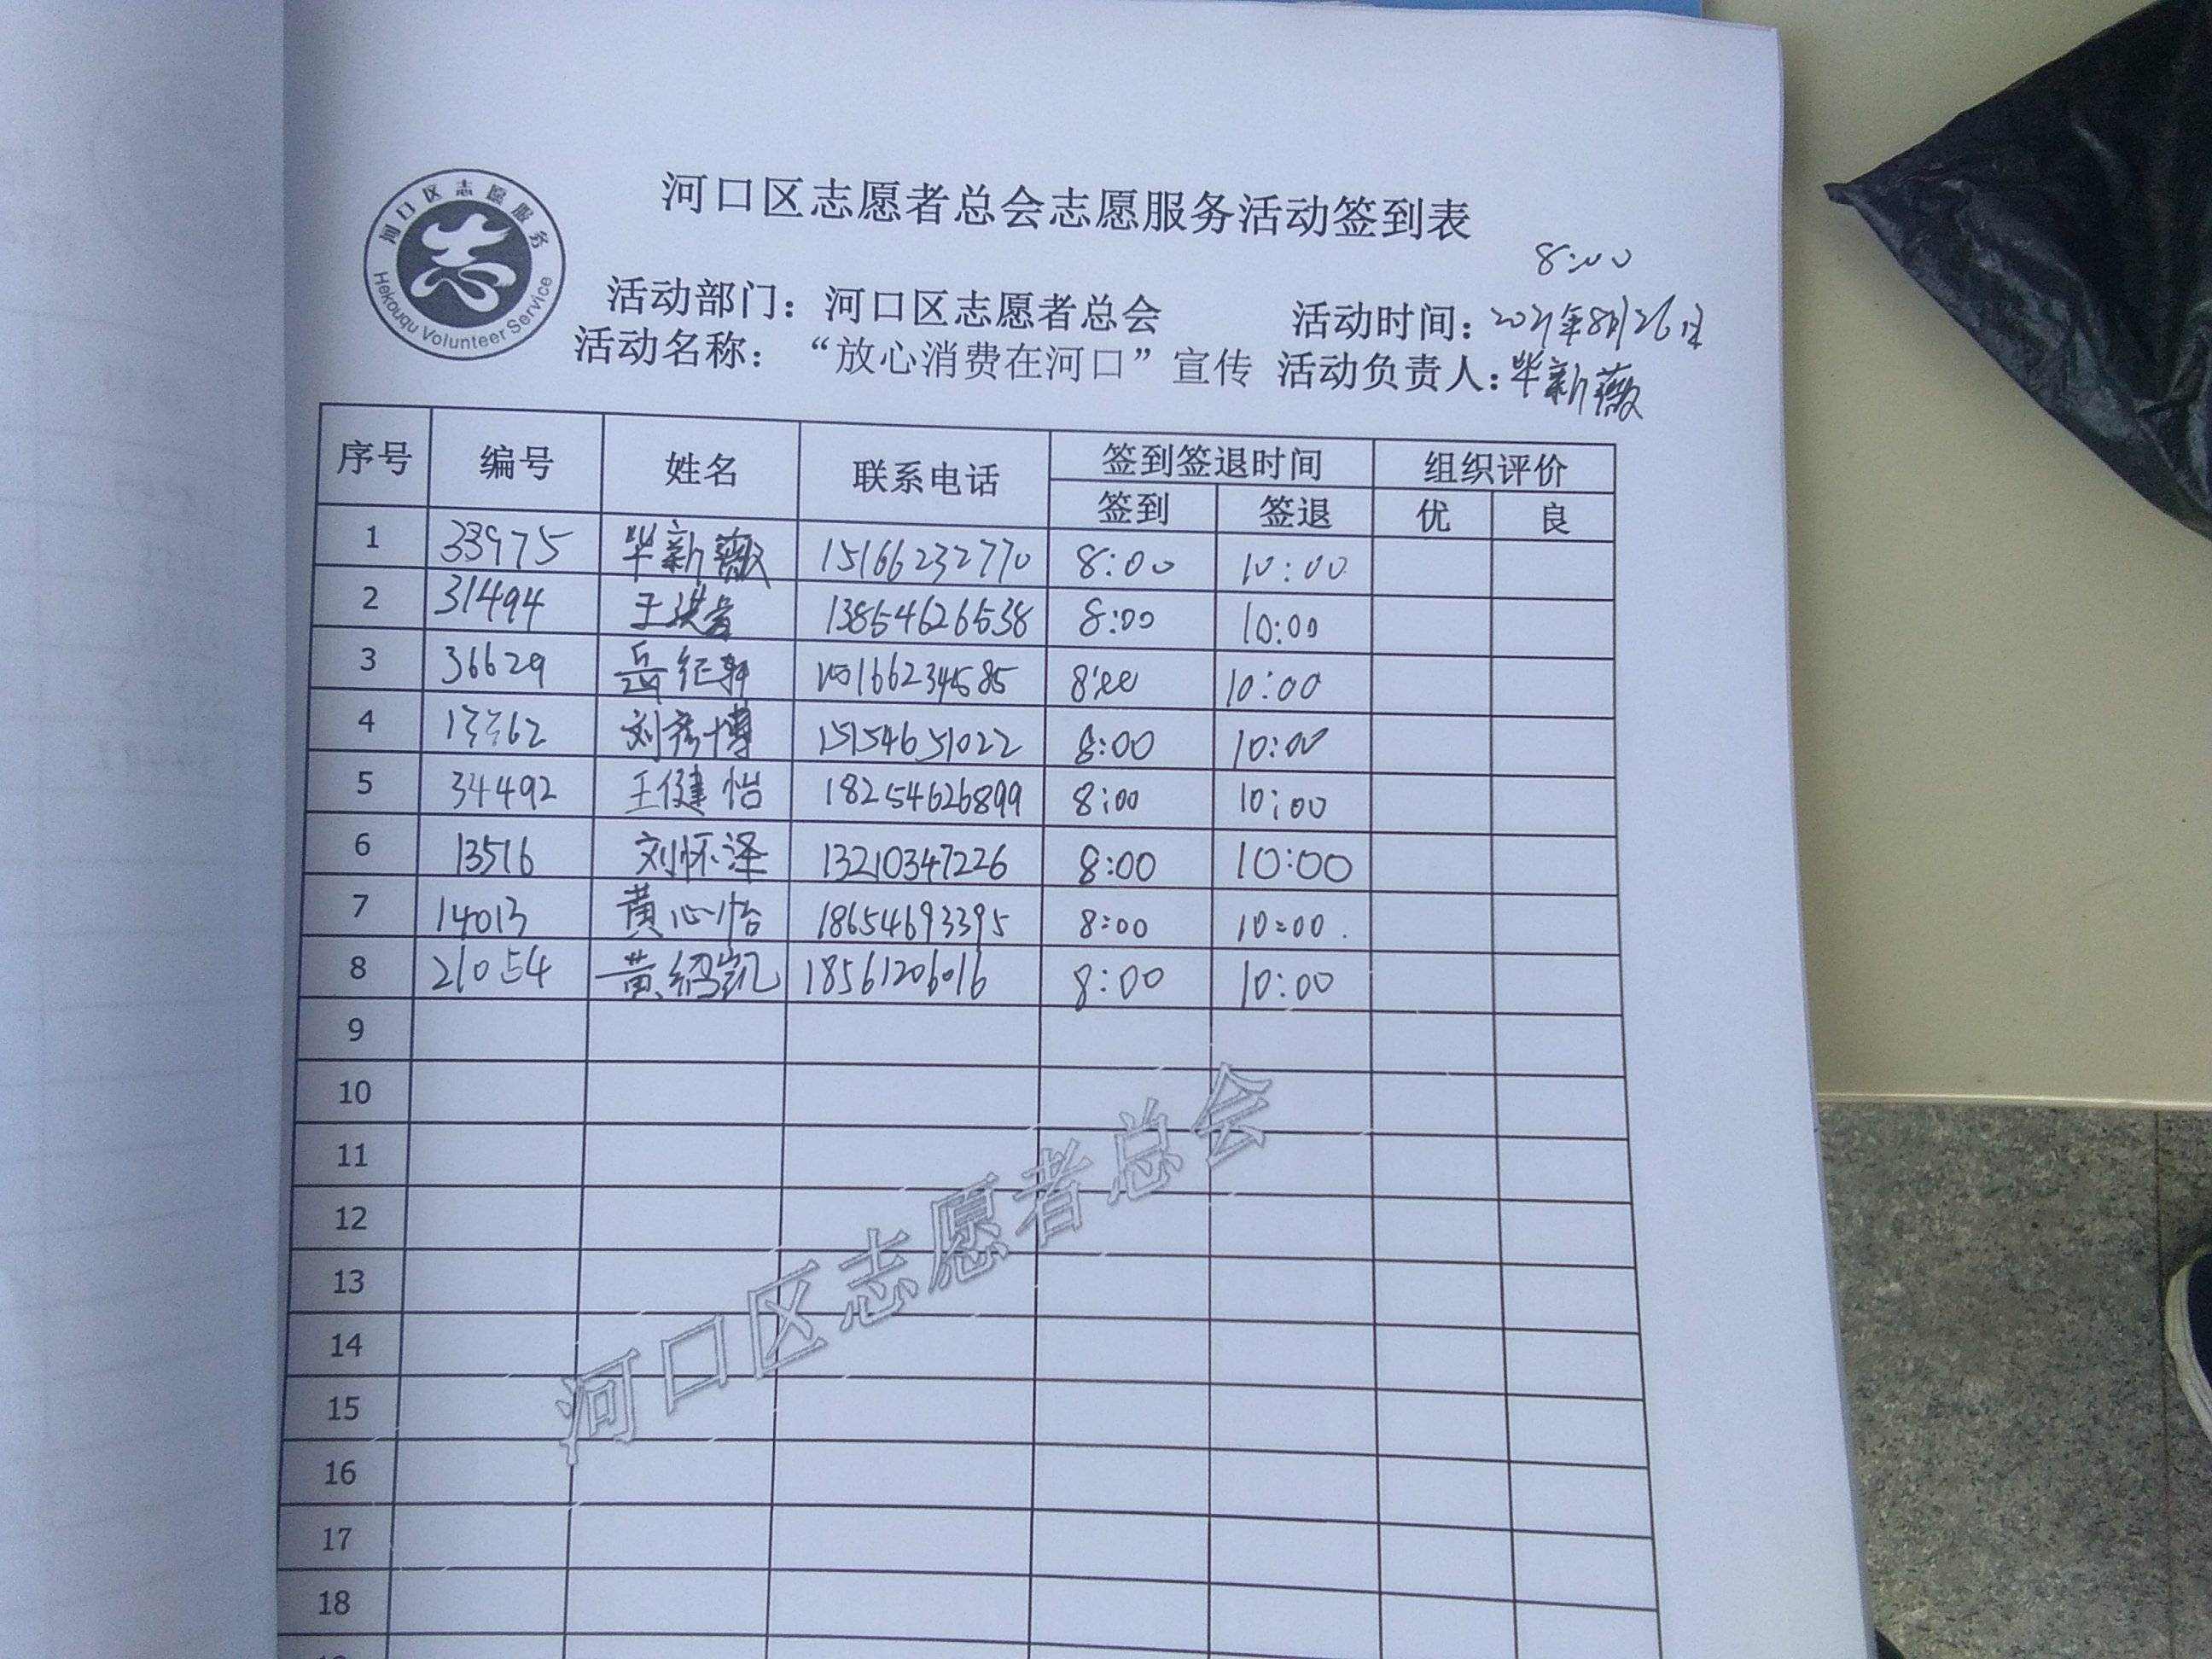 河口区志愿服务
Hekouqu Volunteer Service
河口区志愿者总会志愿服务活动签到表
8:00
活动部门：河口区志愿者总会 活动时间：2021年8月26日
活动名称：“放心消费在河口”宣传 活动负责人：毕新薇
序号 编号 姓名 联系电话 签到签退时间 组织评价
签到 签退 优 良
1 33975 毕新薇 15166232770 8:00 10:00
2 31494 于 8:00 10:00
3 36629 岳纪轩 8:00 10:00
4 刘彦博 15154651022 8:00 10:00
5 34492 王健怡 18254626899 8:00 10:00
6 13516 刘怀泽 13210347226 8:00 10:00
7 14013 黄心怡 18654693395 8:00 10:00
8 21054 黄绍凯 18561206016 8:00 10:00
9
10
11
12
13
14
15
16
17
18
河口区志愿者总会